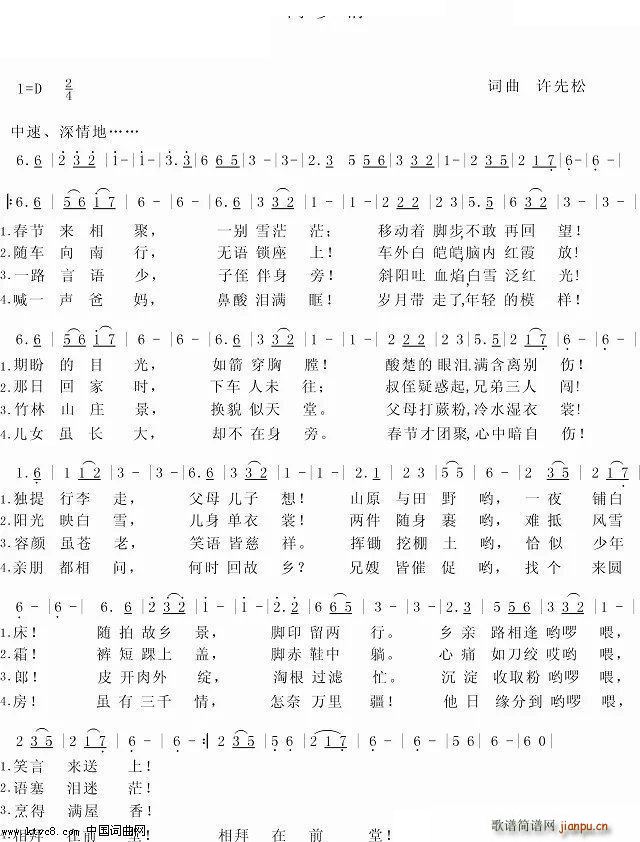 1=D 2/4
词曲 许先松
中速、深情地……
6.6 |2 3 2 |1-|1-|3.3|6 6 5|3-|3-|2.3 5 5 6|3 3 2|1-|2 3 5|2 1 7|6-|6-|
|:6.6 |5 6 1 7|6-|6-|6.6|3 3 2|1-|1-|2 2 2|2 2 3|2 3|5.5|6 3 5|3-|3-|
1.春节 来 相 聚, 一别 雪茫 茫; 移动着 脚步不敢 再回 望!
2.随车 向 南 行, 无语 锁座 上! 车外白 皑皑,脑内 红霞 放!
3.一路 言 语 少, 子侄 伴身 旁! 斜阳吐 血焰,白雪 泛红 光!
4.喊一 声 爸 妈, 鼻酸 泪满 眶! 岁月带 走了,年轻 的模 样!
6.6 |5 6 1 7|6-|6-|6.6|3 3 2|1-|1-|2 2 2|2 2 3|2 3|5.5|2 1 7|6-|6-|
1.期盼 的 目 光, 如箭 穿胸 膛! 酸楚的 眼泪,满含 离别 伤!
2.那日 回 家 时, 下车 人未 往; 叔侄疑 惑起,兄弟 三人 闯!
3.竹林 山 庄 景, 换貌 似天 堂。 父母打 蕨粉,冷水 湿衣 裳!
4.儿女 虽 长 大, 却不 在身 旁。 春节才 团聚,心中 暗自 伤!
1.6 |1 1 2|3-|3-|6.6|3 3 2|1-|1-|2.1|2 3|5-|6-|2 3 5|2 1 7|
1.独提 行李 走, 父母 儿子 想! 山原 与田 野 哟, 一 夜 铺白
2.阳光 映白 雪, 儿身 单衣 裳! 两件 随身 裹 哟, 难 抵 风雪
3.容颜 虽苍 老, 笑语 皆慈 祥。 挥锄 挖棚 土 哟, 恰 似 少年
4.亲朋 都相 问, 何时 回故 乡? 兄嫂 皆催 促 哟, 找 个 来圆
6-|6-| 6.6 |2 3 2|1-|1-|2.2|6 6 5|3-|3-|2.3|5 5 6|3 3 2|1-|
1.床! 随 拍 故乡 景, 脚印 留两 行。 乡 亲 路相逢 哟啰 喂,
2.霜! 裤 短 踝上 盖, 脚赤 鞋中 躺。 心 痛 如刀绞 哎哟 喂,
3.郎! 皮 开 肉外 绽, 淘根 过滤 忙。 沉 淀 收取粉 哟啰 喂,
4.房! 虽 有 三千 情, 怎奈 万里 疆! 他 日 缘分到 哟啰 喂,
2 3 5|2 1 7|6-|6-:|2 3 5|6 6|2 1 7|6-|6-|6-|6 0|
1.笑言 来送 上!
2.语塞 泪迷 茫!
3.烹得 满屋 香!
相拜 在前 堂! 相拜 在 前 堂!
www.ktvc8.com 中国词曲网
歌谱简谱网
jianpu.cn